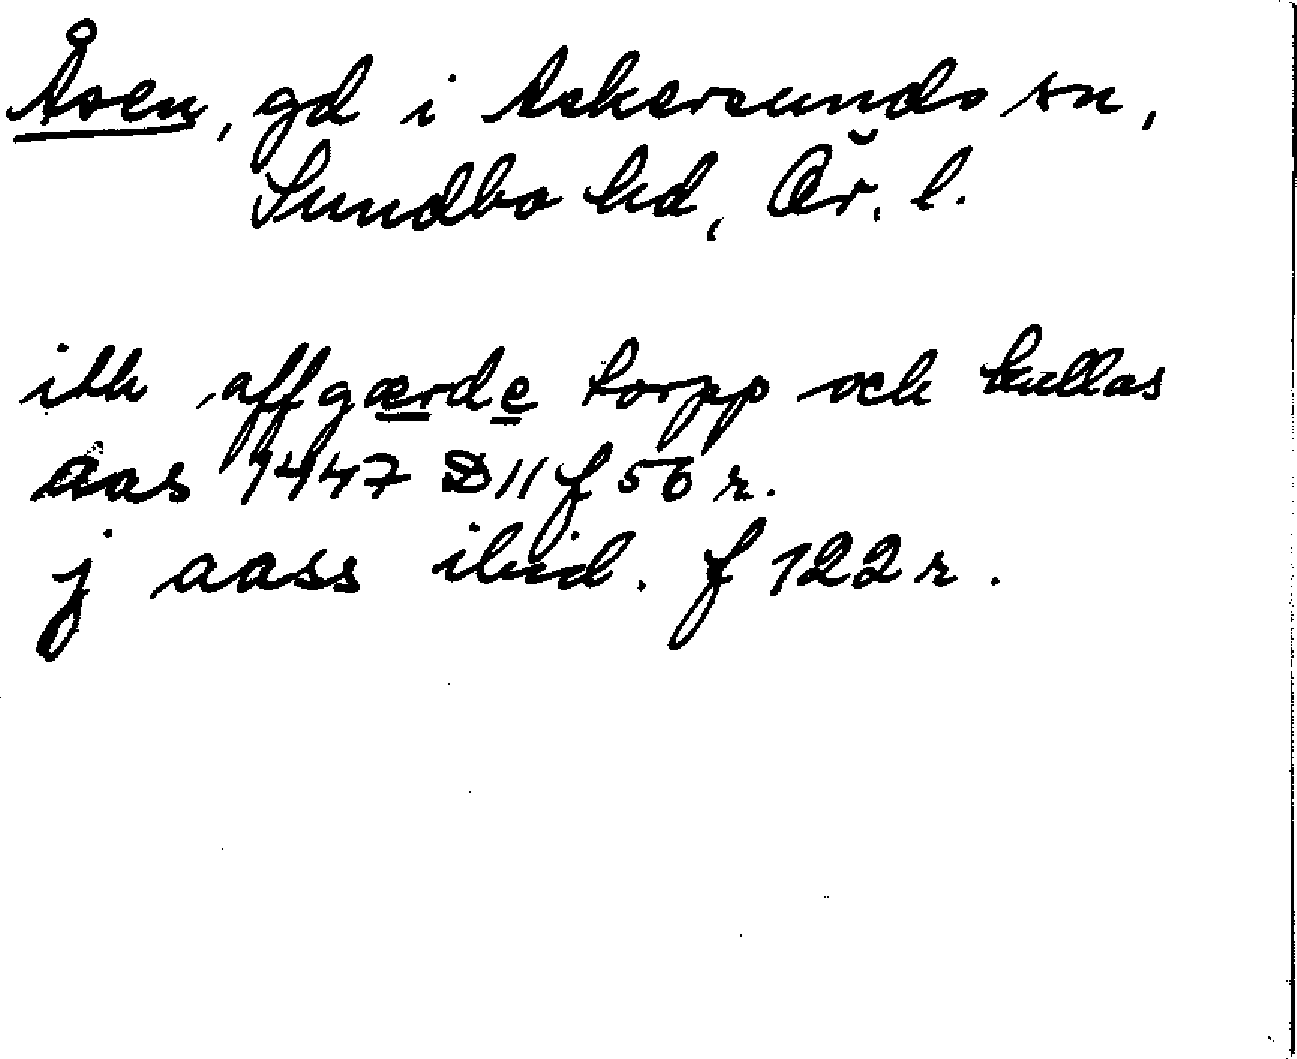 Åsen, gd i Askersunds sn,
Sundbo hd, Ör. l.
itk affgærde torpp och kallas
aas 1447 D 11 f 56 r.
j aass ibid. f 122 r.